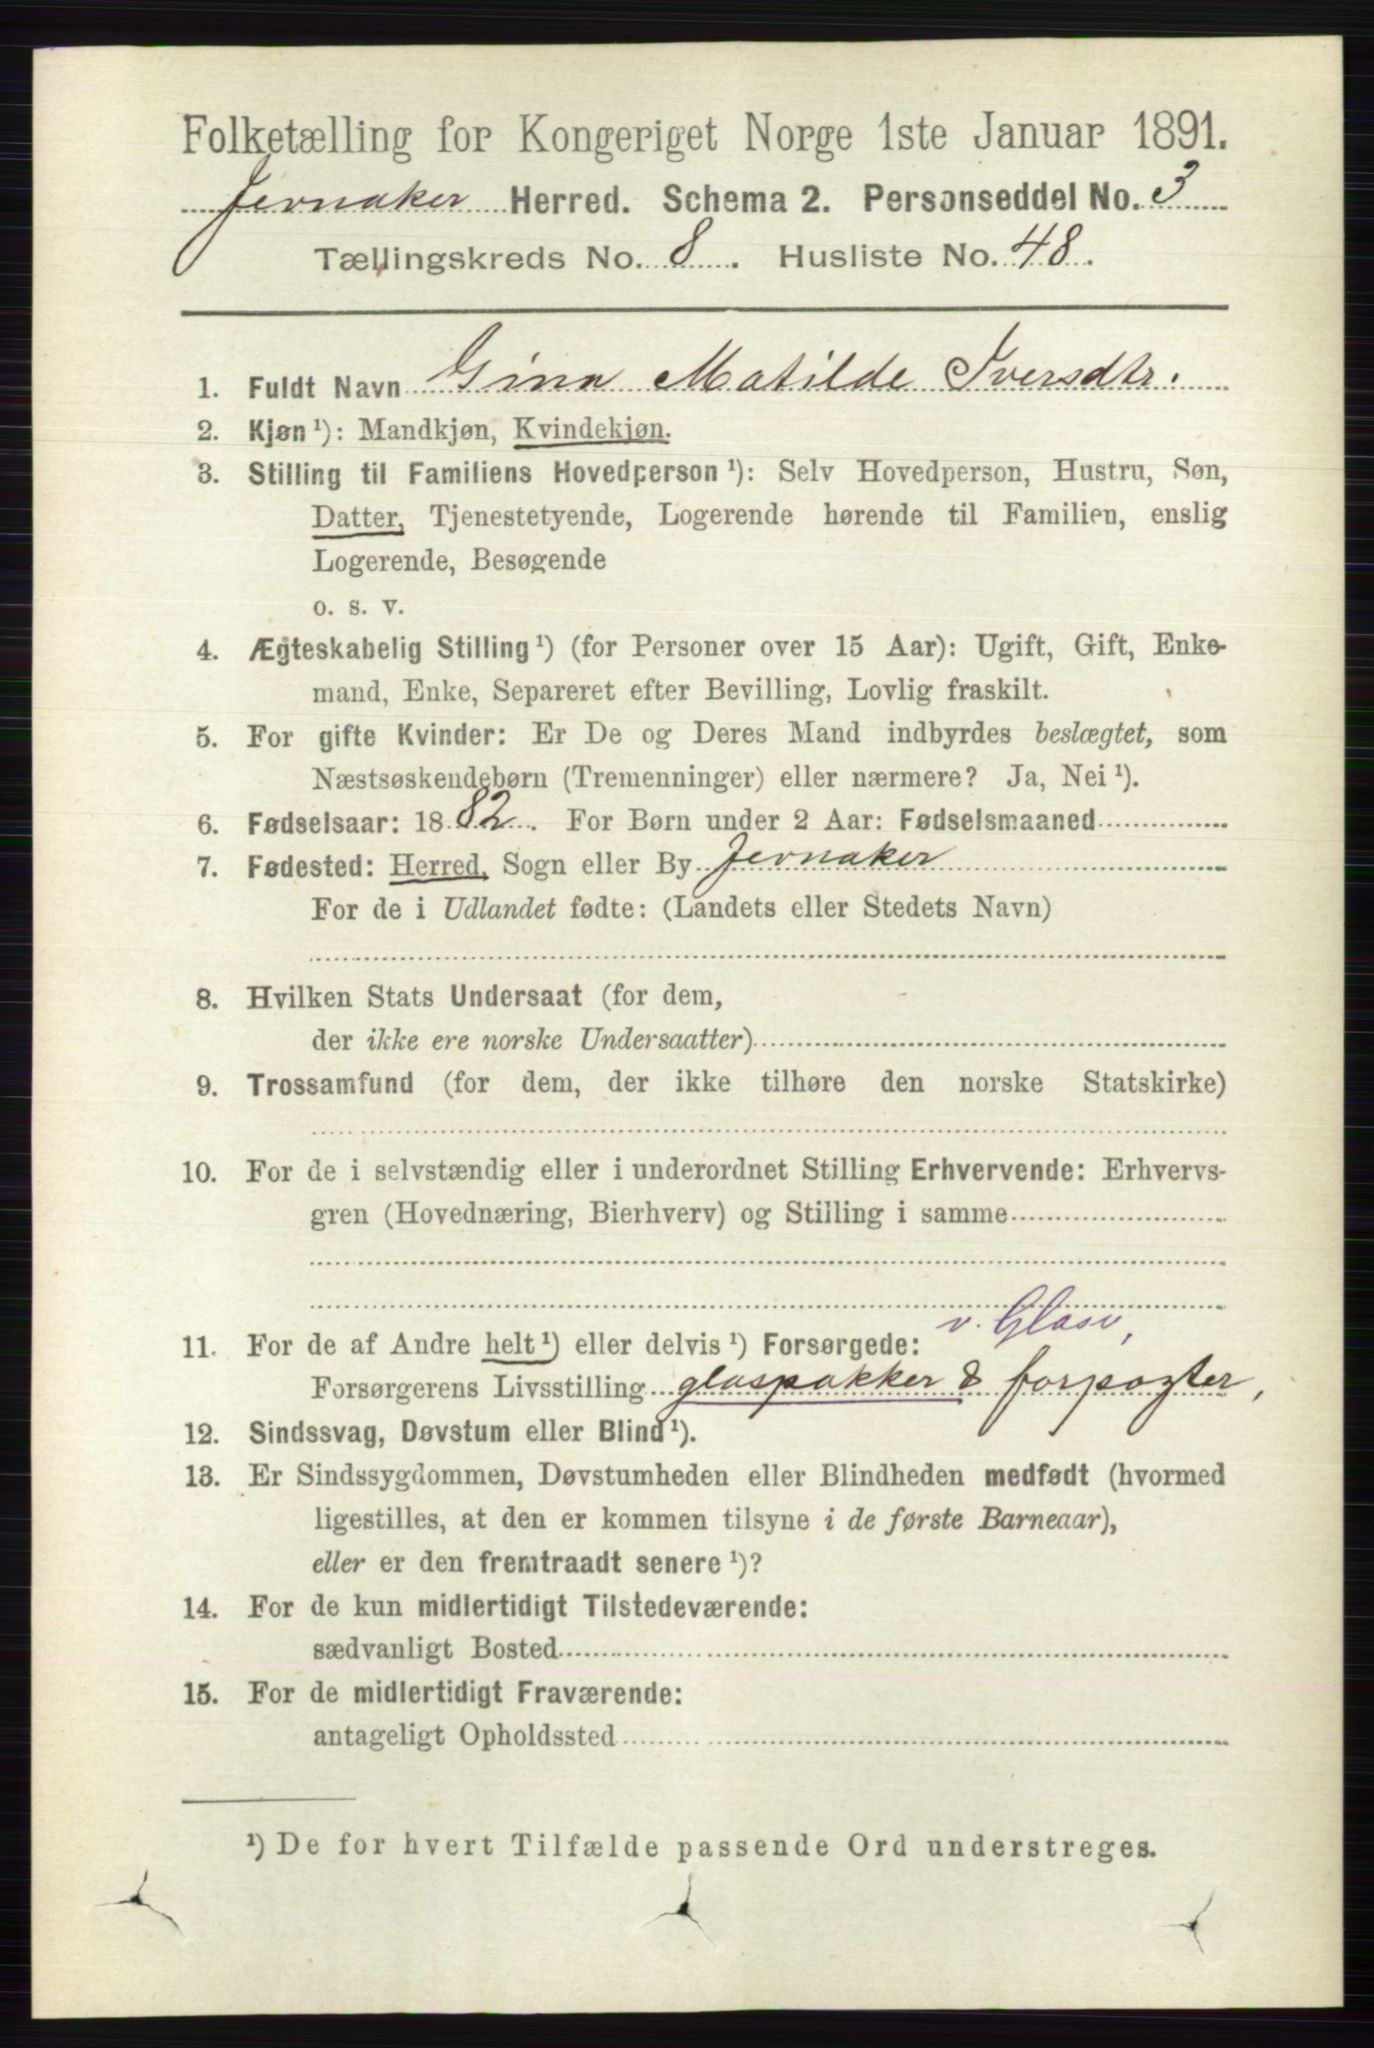 Folketælling for Kongeriget Norge 1ste Januar 1891.
Jevnaker Herred. Schema 2. Personseddel No. 3
Tællingskreds No. 8. Husliste No. 48.
1. Fuldt Navn Gina Matilde Iversdtr.
2. Kjøn ¹): Mandkjøn, Kvindekjøn.
3. Stilling til Familiens Hovedperson ¹): Selv Hovedperson, Hustru, Søn,
Datter, Tjenestetyende, Logerende hørende til Familien, enslig
Logerende, Besøgende
o. s. v.
4. Ægteskabelig Stilling ¹) (for Personer over 15 Aar): Ugift, Gift, Enke-
mand, Enke, Separeret efter Bevilling, Lovlig fraskilt.
5. For gifte Kvinder: Er De og Deres Mand indbyrdes beslægtet, som
Næstsøskendebørn (Tremenninger) eller nærmere? Ja, Nei ¹).
6. Fødselsaar: 1882. For Børn under 2 Aar: Fødselsmaaned
7. Fødested: Herred, Sogn eller By Jevnaker
For de i Udlandet fødte: (Landets eller Stedets Navn)
8. Hvilken Stats Undersaat (for dem,
der ikke ere norske Undersaatter)
9. Trossamfund (for dem, der ikke tilhøre den norske Statskirke)
10. For de i selvstændig eller i underordnet Stilling Erhvervende: Erhvervs-
gren (Hovednæring, Bierhverv) og Stilling i samme
v. Glasv,
11. For de af Andre helt ¹) eller delvis ¹) Forsørgede:
Forsørgerens Livsstilling glaspakker & forpagter,
12. Sindssvag, Døvstum eller Blind ¹).
13. Er Sindssygdommen, Døvstumheden eller Blindheden medfødt (hvormed
ligestilles, at den er kommen tilsyne i de første Barneaar),
eller er den fremtraadt senere ¹)?
14. For de kun midlertidigt Tilstedeværende:
sædvanligt Bosted
15. For de midlertidigt Fraværende:
antageligt Opholdssted
¹) De for hvert Tilfælde passende Ord understreges.